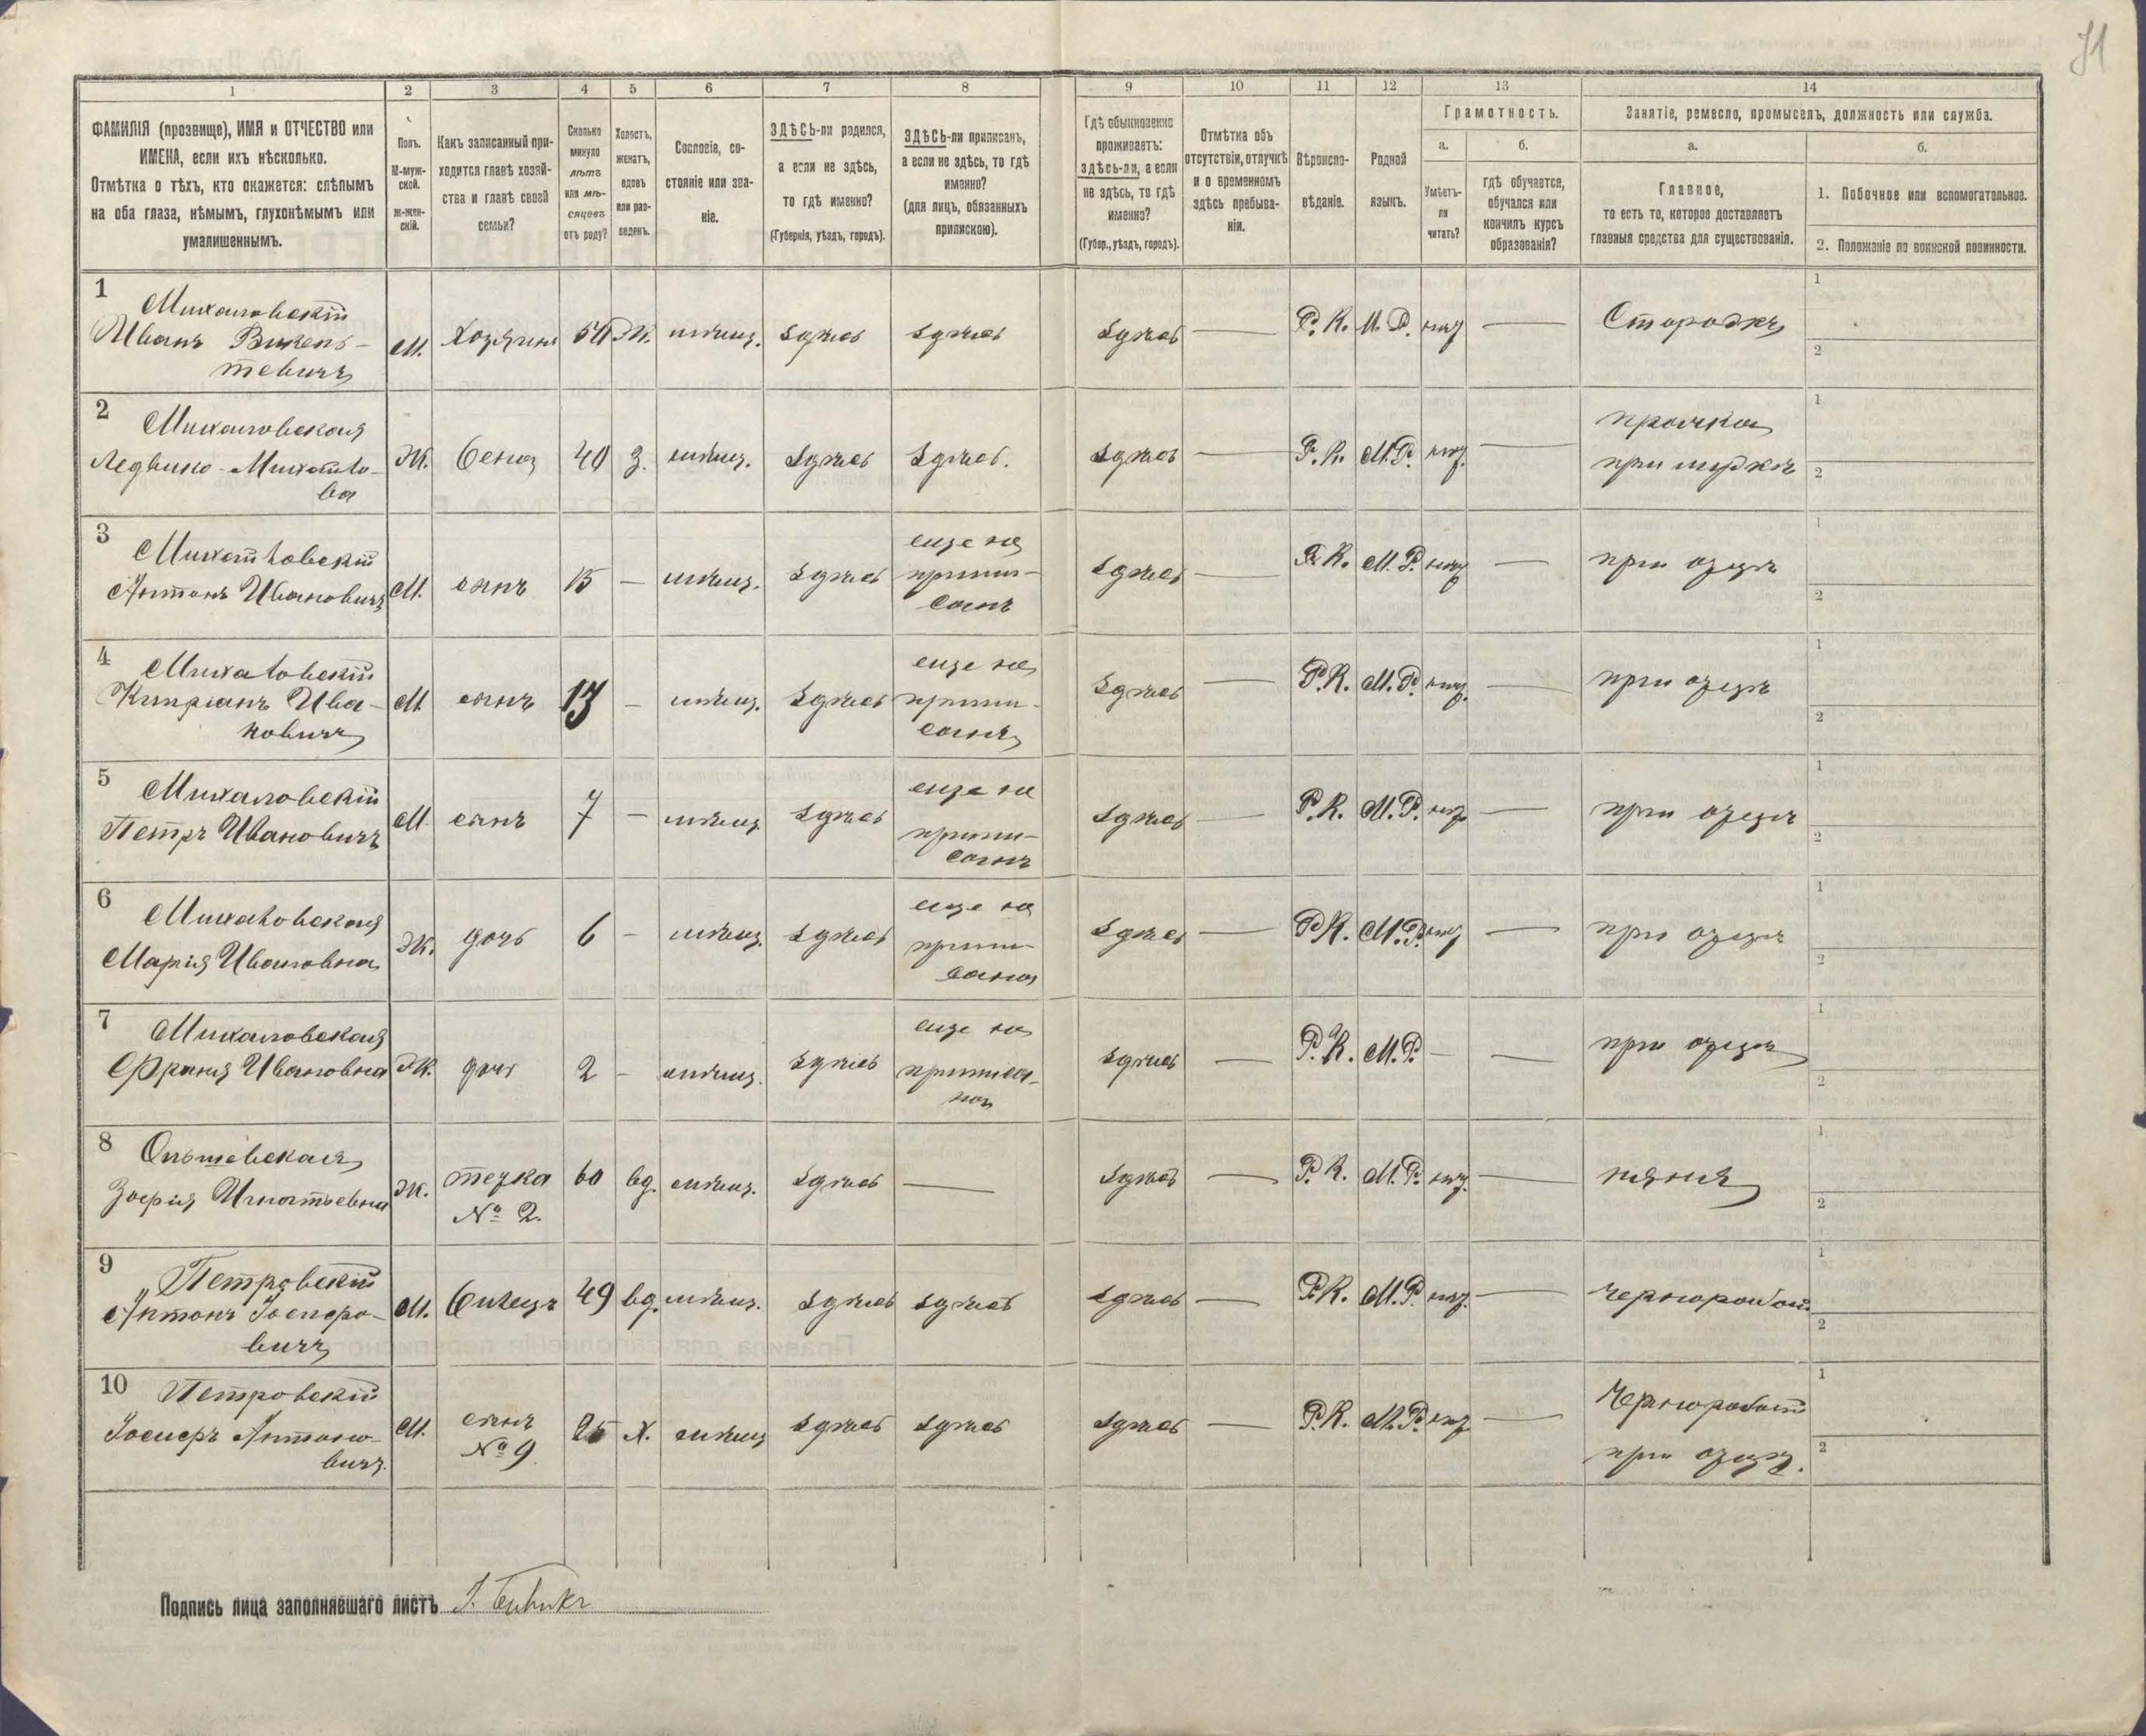 71
1 2 3 4 5 6 7 8 9 10 11 12 13 14
ФАМИЛІЯ (прозвище), ИМЯ и ОТЧЕСТВО или
ИМЕНА, если ихъ нѣсколько.
Отмѣтка о тѣхъ, кто окажется: слѣпымъ
на оба глаза, нѣмымъ, глухонѣмымъ или
умалишеннымъ.
Полъ.
М-муж-
ской.
ж-жен-
скій.
Какъ записанный при-
ходится главѣ хозяй-
ства и главѣ своей
семьи?
Сколько
минуло
лѣтъ
или мѣ-
сяцевъ
отъ роду?
Холостъ,
женатъ,
вдовъ
или раз-
веденъ.
Сословіе, со-
стояніе или зва-
ніе.
ЗДѢСЬ-ли родился,
а если не здѣсь,
то гдѣ именно?
(Губернія, уѣздъ, городъ).
ЗДѢСЬ-ли приписанъ,
а если не здѣсь, то гдѣ
именно?
(для лицъ, обязанныхъ
припискою).
Гдѣ обыкновенно
проживаетъ:
здѣсь-ли, а если
не здѣсь, то гдѣ
именно?
(Губер., уѣздъ, городъ).
Отмѣтка объ
отсутствіи, отлучкѣ
и о временномъ
здѣсь пребыва-
ніи.
Вѣроиспо-
вѣданіе.
Родной
языкъ.
Грамотность.
а.
Умѣетъ-
ли
читать?
б.
гдѣ обучается,
обучался или
кончилъ курсъ
образованія?
Занятіе, ремесло, промыселъ, должность или служба.
а.
Главное,
то есть то, которое доставляетъ
главныя средства для существованія.
б.
1. Побочное или вспомогательное.
2. Положеніе по воинской повинности.
1 Михаловскій
Иванъ Викень-
тевичъ
М. Хозяинъ 54 Ж. мѣщ. здѣсь здѣсь здѣсь — Р. К. М. Р. — Сторожъ
1
2
2 Михаловская
Ядвига Михайло-
ва
Ж. 40 з. мѣщ. здѣсь здѣсь. здѣсь — Р. К. М. Р. — прачка
1
2
3 Михаловскій
Антонъ Ивановичъ
М. сынъ 15 — мѣщ. здѣсь еще не
приписанъ
здѣсь — Р. К. М. Р. — при отцѣ
1
2
4 Михаловскій
Кипріанъ Ива-
новичъ
М. сынъ 13 — мѣщ. здѣсь еще не
приписанъ
здѣсь — Р. К. М. Р. — при отцѣ
1
2
5 Михаловскій
Петръ Ивановичъ
М. сынъ 7 — мѣщ. здѣсь еще не
приписанъ
здѣсь — Р. К. М. Р. — при отцѣ
1
2
6 Михаловская
Марія Ивановна
Ж. дочь 6 — мѣщ. здѣсь еще не
приписана
здѣсь — Р. К. М. Р. — при отцѣ
1
2
7 Михаловская
Франя Ивановна
Ж. дочь 2 — мѣщ. здѣсь еще не
приписа-
на
здѣсь — Р. К. М. Р. — — при отцѣ
1
2
8
Зофія Игнатьевна
Ж. тещка
№ 2.
60 вд. мѣщ. здѣсь — здѣсь — Р. К. М. Р. — няня
1
2
9 Петровскій
Антонъ Іосифо-
вичъ
М. 49 вд. мѣщ. здѣсь здѣсь здѣсь — Р. К. М. Р. — чернорабоч.
1
2
10 Петровскій
Іосифъ Антоно-
вичъ.
М. сынъ
№ 9.
25 х. мѣщ. здѣсь здѣсь здѣсь — Р. К. М. Р. — Чернорабоч.
при отцѣ.
1
2
Подпись лица заполнявшаго листъ